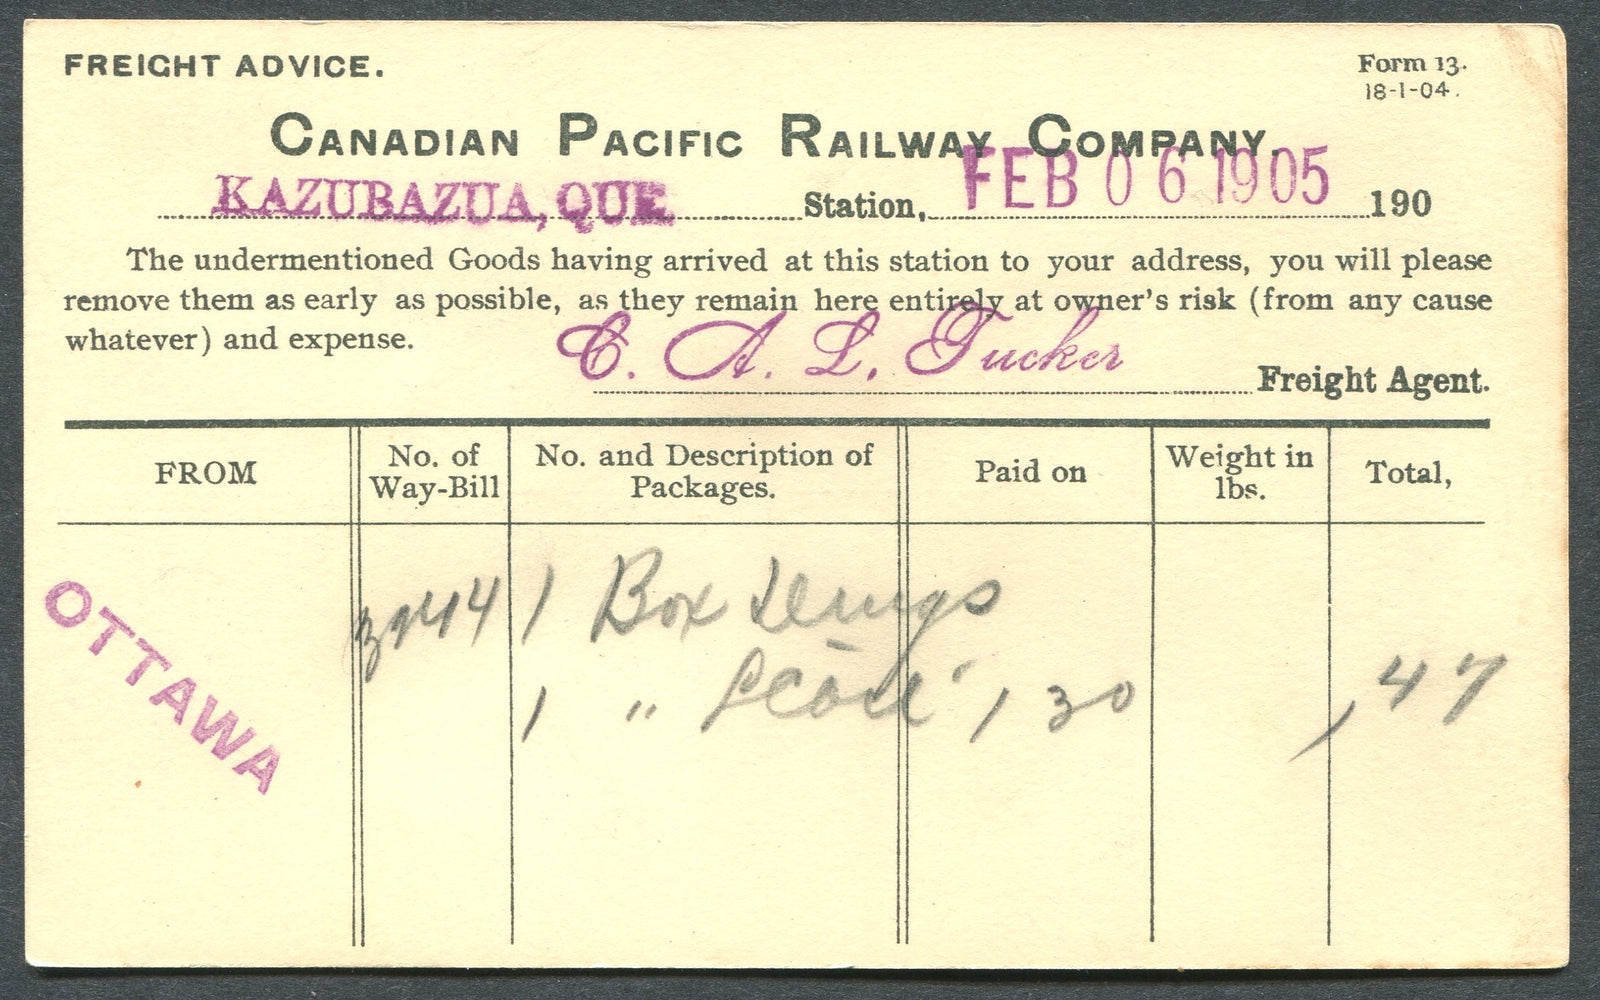 FREIGHT ADVICE.
Form 13.
18-1-04.
CANADIAN PACIFIC RAILWAY COMPANY.
KAZUBAZUA, QUE. Station, FEB 06 1905 190
The undermentioned Goods having arrived at this station to your address, you will please
remove them as early as possible, as they remain here entirely at owner's risk (from any cause
whatever) and expense.
C. A. L. Tucker Freight Agent.
FROM
No. of
Way-Bill
No. and Description of
Packages.
Paid on
Weight in
lbs.
Total,
OTTAWA
1 Box Drugs
1 " 130 ,47